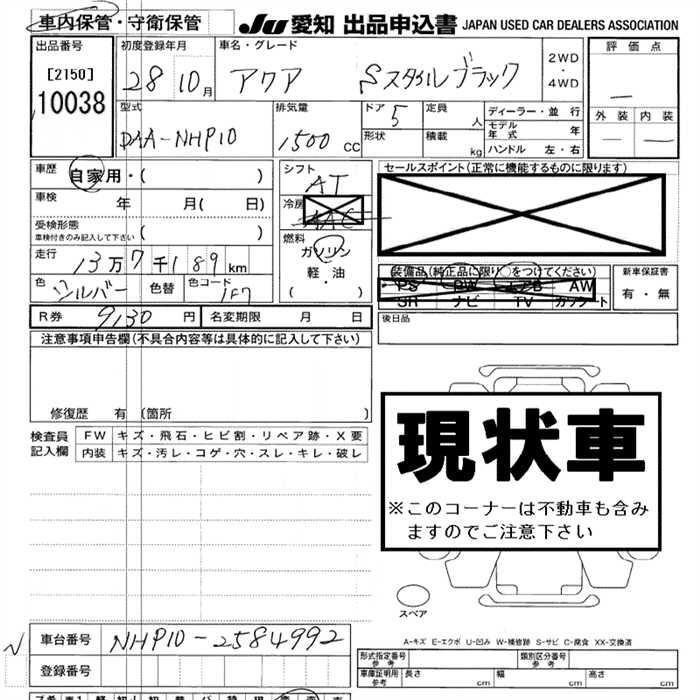 車内保管・守衛保管 JU 愛知 出品申込書 JAPAN USED CAR DEALERS ASSOCIATION
出品番号 初度登録年月 車名・グレード 2WD・4WD 評価点
[2150]
10038 28 10月 アクア Sスタイルブラック
外装 内装
型式 排気量 ドア 5 定員 人 ディーラー・並行
DAA-NHP10 1500 cc 形状 積載 kg モデル年式 年
ハンドル 左・右
車歴 自家用・( ) シフト AT セールスポイント(正常に機能するものに限ります)
車検 年 月( 日) 冷房 AAC
受検形態
車検付きのみ記入して下さい ( ) 燃料 ガソリン
走行 13万7千189km 軽・油
( ・ )
装備品(純正品に限り)をつけてください 新車保証書
色 シルバー 色替 色コード 1F7 PS PW エアB AW 有・無
SR ナビ TV カッケート
R券 9,130円 名変期限 月 日 後日品
注意事項申告欄(不具合内容等は具体的に記入して下さい)
修復歴 有 (箇所 )
検査員記入欄 FW キズ・飛石・ヒビ割・リペア跡・X要
内装 キズ・汚レ・コゲ・穴・スレ・キレ・破レ
現状車
※このコーナーは不動車も含み
ますのでご注意下さい
スペア
A-キズ E-エクボ U-凹み W-補修跡 S-サビ C-腐食 XX-交換済
車台番号 NHP10-2584992 形式指定番号 参考 類別区分番号 参考
登録番号 車庫証明用 参考 長さ cm 幅 cm 高さ cm